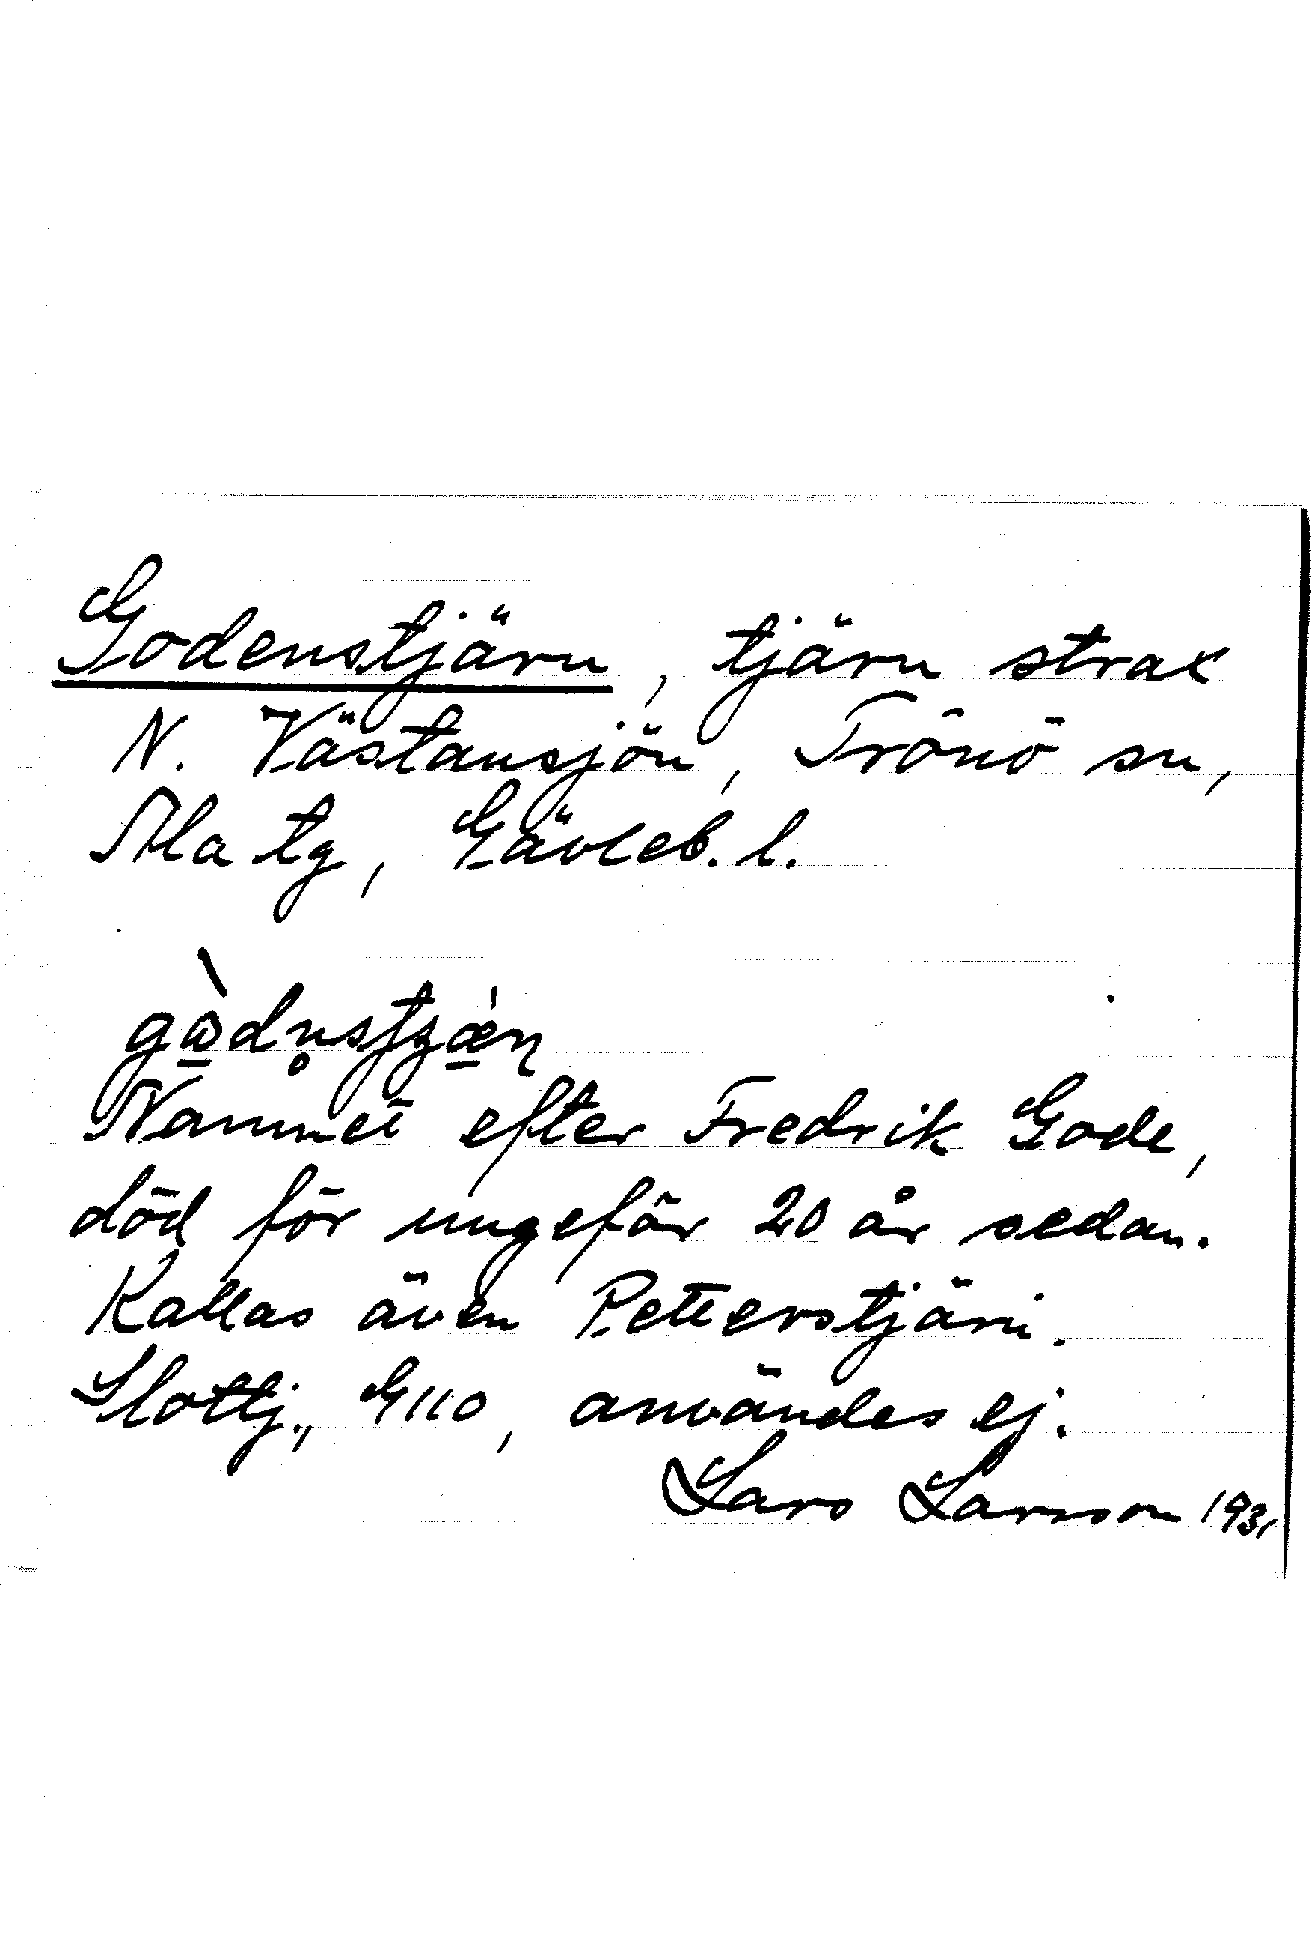 Godenstjärn, tjärn strax
N. Västansjön, Trönö sn,
Ala tg, Gävleb. l.
Namnet efter Fredrik Gode,
död för ungefär 20 år sedan.
Kallas även Petterstjärn.
Slottj., G110, användes ej.
Lars Larsson 1931